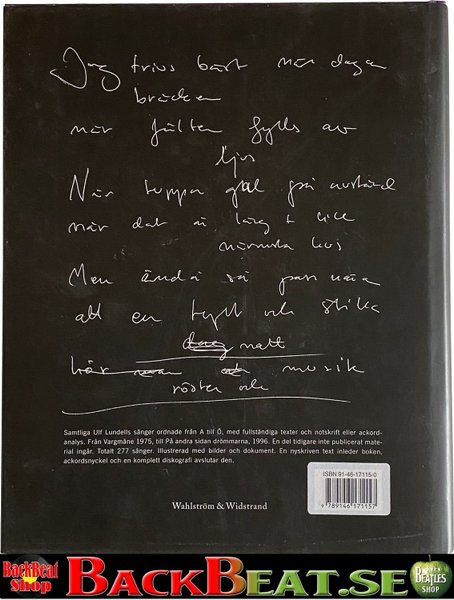 Jag trivs bäst när dagen
bräcker
när fälten fylls av
ljus
När tuppar gal på avstånd
när det är lång t ill
närmsta hus
Men ändå så pass nära
att en tyst och stilla
dag natt
hör man och musik
röster och
Samtliga Ulf Lundells sånger ordnade från A till Ö, med fullständiga texter och notskrift eller ackord-
analys. Från Vargmåne 1975, till På andra sidan drömmarna, 1996. En del tidigare inte publicerat mate-
rial ingår. Totalt 277 sånger. Illustrerad med bilder och dokument. En nyskriven text inleder boken,
ackordsnyckel och en komplett diskografi avslutar den.
ISBN 91-46-17115-0
9 789146 171157
Wahlström & Widstrand
BackBeat
Shop
BACKBEAT.SE
BEATLES
SHOP